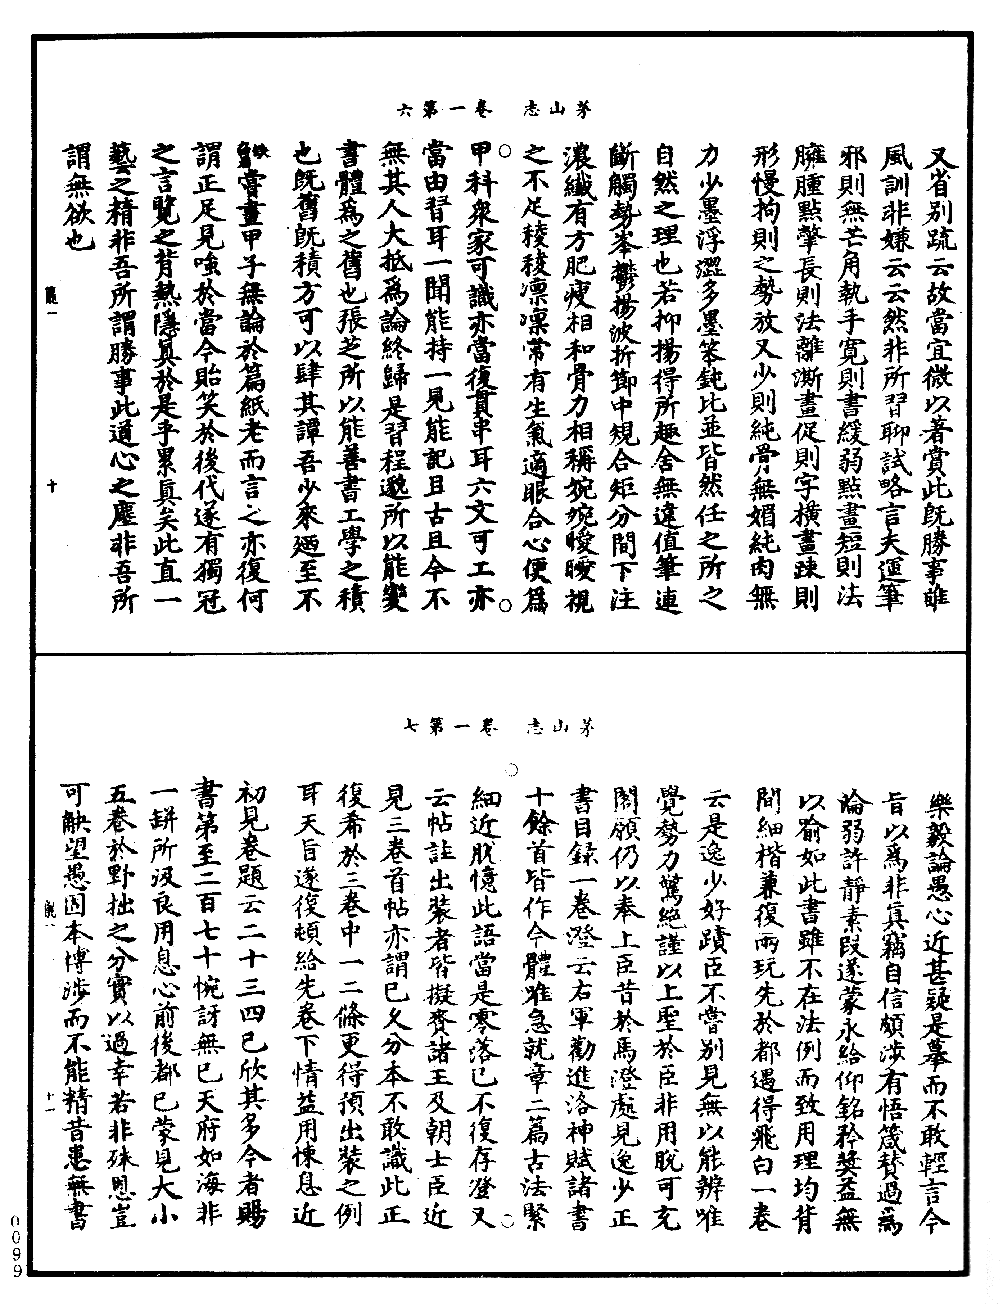 茅山志　卷一第六
又省別疏云故當宜微以著賞此旣勝事雖
風訓非嫌云云然非所習聊試略言夫運筆
邪則無芒角執手寬則書緩弱點畫短則法
臃腫點掣長則法離澌畫促則字橫畫踈則
形慢拘則乏勢放又少則純骨無媚純肉無
力少墨浮澀多墨笨鈍比並皆然任之所之
自然之理也若抑揚得所趣舍無違值筆連
斷觸勢峯鬱揚波折節中規合矩分間下注
濃纖有方肥瘦相和骨力相稱婉婉曖曖視
之不足稜稜凛凛常有生氣適眼合心便爲
甲科衆家可識亦當復貫串耳六文可工亦
當由習耳一聞能持一見能記且古且今不
無其人大抵爲論終歸是習程邈所以能變
書體爲之舊也張芝所以能善書工學之積
也旣舊旣積方可以肆其譚吾少來廼至不
嘗畫甲子無論於篇紙老而言之亦復何
謂正足見嗤於當今貽笑於後代遂有獨冠
之言覽之背熱隱眞於是乎累眞矣此直一
藝之精非吾所謂勝事此道心之塵非吾所
謂無欲也
十
茅山志　卷一第七
樂毅論愚心近甚疑是摹而不敢輕言今
旨以爲非眞竊自信頗涉有悟箴賛過爲
論弱許靜素段遂蒙永給仰銘矜奬益無
以喻如此書雖不在法例而致用理均背
間細楷兼復兩玩先於都遇得飛白一卷
云是逸少好蹟臣不嘗別見無以能辨唯
覺勢力驚絶謹以上聖於臣非用脫可充
閣願仍以奉上臣昔於馬澄處見逸少正
書目録一卷澄云右軍勸進洛神賦諸書
十餘首皆作今體唯急就章二篇古法緊
細近脫憶此語當是零落已不復存澄又
云帖註出裝者皆擬賚諸王及朝士臣近
見三卷首帖亦謂已久分本不敢識此正
復希於三卷中一二條更得預出裝之例
耳天旨遂復頓給先卷下情益用悚息近
初見卷題云二十三四已欣其多今者賜
書第至二百七十惋訝無已天府如海非
一缾所汲良用息心前後都已蒙見大小
五卷於野拙之分實以過幸若非殊恩豈
可觖望愚固本博涉而不能精昔患無書
十一
0099